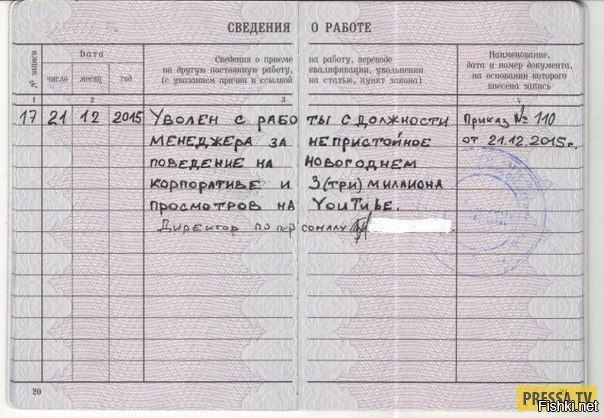 СВЕДЕНИЯ О РАБОТЕ
№ записи
Дата
число месяц год
Сведения о приеме на работу, переводе
на другую постоянную работу, квалификации, увольнении
(с указанием причин и ссылкой на статью, пункт закона)
Наименование,
дата и номер документа,
на основании которого
внесена запись
1 2 3 4
17 21 12 2015 Уволен с работы с должности Приказ № 110
менеджера за непристойное от 21.12.2015г.
поведение на новогоднем
корпоративе и 3(три) миллиона
просмотров на YouTube.
Директор по персоналу
20
PRESSA.TV
Fishki.net